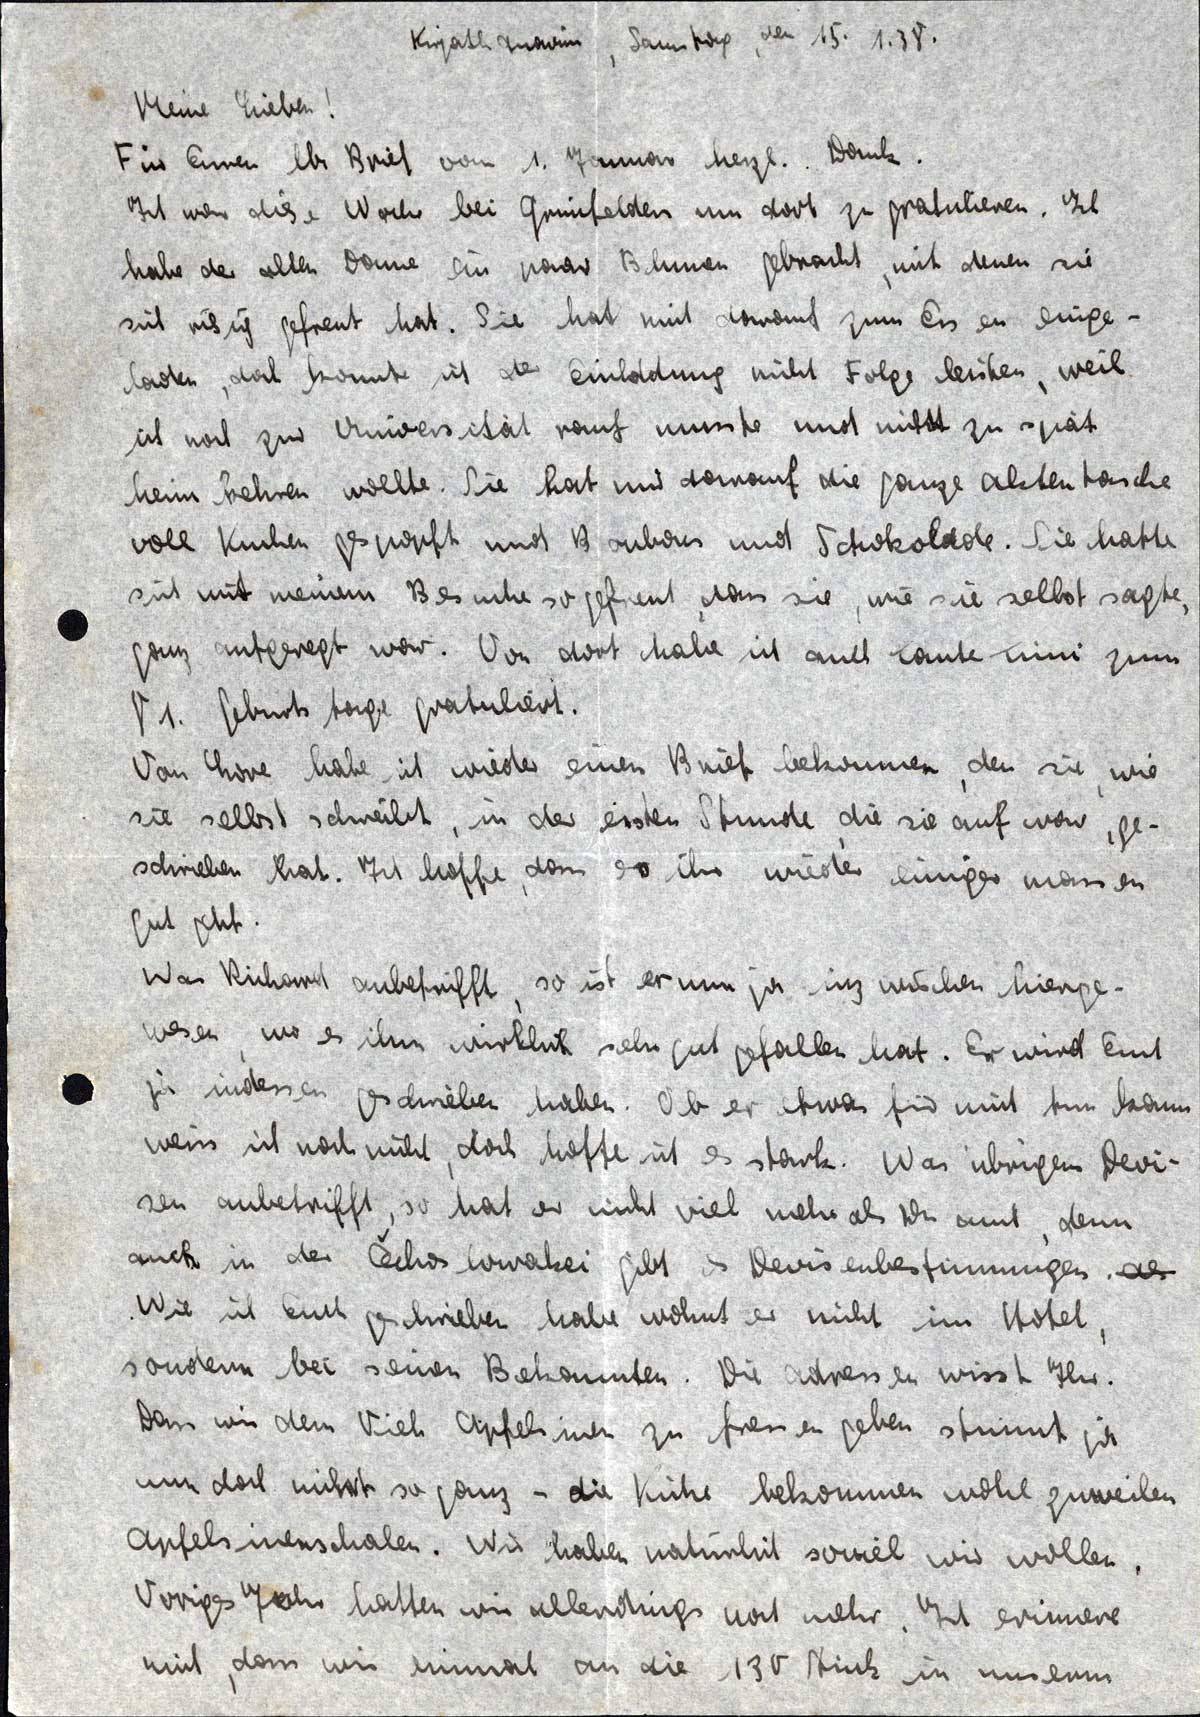 Kirjath Anavim, Samstag, den 15. 1.38.
Meine Lieben!
Für Euren lb. Brief vom 1. Januar herzl. Dank.
Ich war diese Woche bei Grünfelders um dort zu gratulieren. Ich
habe der alten Dame ein paar Blumen gebracht, mit denen sie
sich riesig gefreut hat. Sie hat mich darauf zum Essen einge-
laden, doch konnte ich der Einladung nicht Folge leisten, weil
ich noch zur Universität rauf musste und nicht zu spät
heim kehren wollte. Sie hat mir darauf die ganze Aktentasche
voll Kuchen gestopft und Bonbons und Schokolade. Sie hatte
sich mit meinem Besuche so gefreut, dass sie, wie sie selbst sagte,
ganz aufgeregt war. Von dort habe ich auch Tante Mimi zum
81. Geburtstage gratuliert.
Von Lore habe ich wieder einen Brief bekommen, den sie, wie
sie selbst schreibt, in der ersten Stunde, die sie auf war, ge-
schrieben hat. Ich hoffe, dass es ihr wieder einiger massen
gut geht.
Was Richard anbetrifft, so ist er nun ja inzwischen hierge-
wesen, wo es ihm wirklich sehr gut gefallen hat. Er wird Euch
ja indessen geschrieben haben. Ob er etwas für mich tun kann
weiss ich noch nicht, doch hoffe ich es stark. Was übrigens Devi-
sen anbetrifft, so hat er nicht viel mehr als Du auch, denn
auch in der Čechoslowakei gibt es Devisenbestimmungen.
Wie ich Euch geschrieben habe wohnt er nicht im Hotel,
sondern bei seinen Bekannten. Die Adressen wisst Ihr.
Dass wir dem Vieh Apfelsinen zu fressen geben stimmt ja
nun doch nicht so ganz - die Kühe bekommen wohl zuweilen
Apfelsinenschalen. Wir haben natürlich soviel wir wollen.
Voriges Jahr hatten wir allerdings noch mehr. Ich erinnere
mich, dass wir einmal an die 130 Stück in unserm